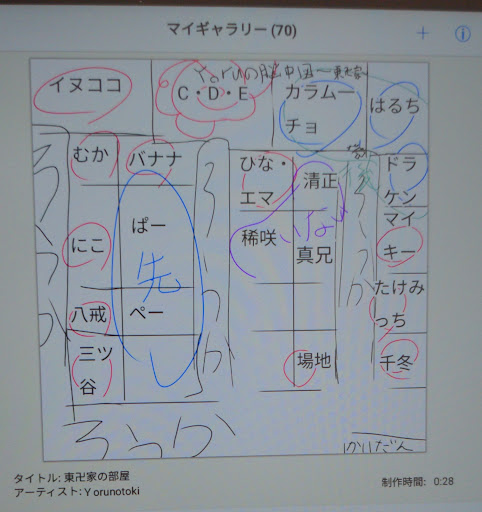 マイギャラリー (70)
イヌココ
C・D・E
カラムー
チョ
はるち
むか
バナナ
ひな・
エマ
清正
ドラ
ケン
にこ
ぱー
先
稀咲
いない
真兄
マイ
キー
八戒
ペー
たけみ
っち
三ツ
谷
し
場地
千冬
ろうか
ろうか
ろうか
ろうか
かいだん
タイトル: 東卍家の部屋
アーティスト: Yorunotoki
制作時間: 0:28